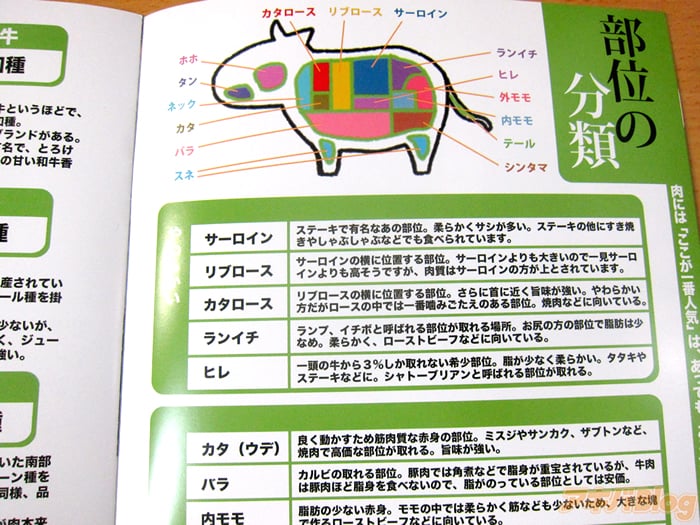 部位の
分類
カタロース リブロース サーロイン
ホホ
タン
ネック
カタ
バラ
スネ
ランイチ
ヒレ
外モモ
内モモ
テール
シンタマ
肉には「ここが一番人気」は、あっても
サーロイン
ステーキで有名なあの部位。柔らかくサシが多い。ステーキの他にすき焼
きやしゃぶしゃぶなどでも食べられています。
リブロース
サーロインの横に位置する部位。サーロインよりも大きいので一見サーロ
インよりも高そうですが、肉質はサーロインの方が上とされています。
カタロース
リブロースの横に位置する部位。さらに首に近く旨味が強い。やわらかい
方だがロースの中では一番噛みごたえのある部位。焼肉などに向いている。
ランイチ
ランプ、イチボと呼ばれる部位が取れる場所。お尻の方の部位で脂肪は少
なめ。柔らかく、ローストビーフなどに向いている。
ヒレ
一頭の牛から3%しか取れない希少部位。脂が少なく柔らかい。タタキや
ステーキなどに。シャトーブリアンと呼ばれる部位が取れる。
カタ（ウデ）
良く動かすため筋肉質な赤身の部位。ミスジやサンカク、ザブトンなど、
焼肉で高価な部位が取れる。旨味が強い。
バラ
カルビの取れる部位。豚肉では角煮などで脂身が重宝されているが、牛肉
は豚肉ほど脂身を食べないので、脂がのっている部位としては安価。
内モモ
脂肪の少ない赤身。モモの中では柔らかく筋なども少ないため、大きな塊
で作るローストビーフなどに向いている。
牛
種
牛というほどで、
種。
ランドがある。
名で、とろけ
の甘い和牛香
種
産されてい
ール種を掛
少ないが、
く、ジュー
強い。
種
いた南部
ーン種を
同様、品
が肉本来
Blog